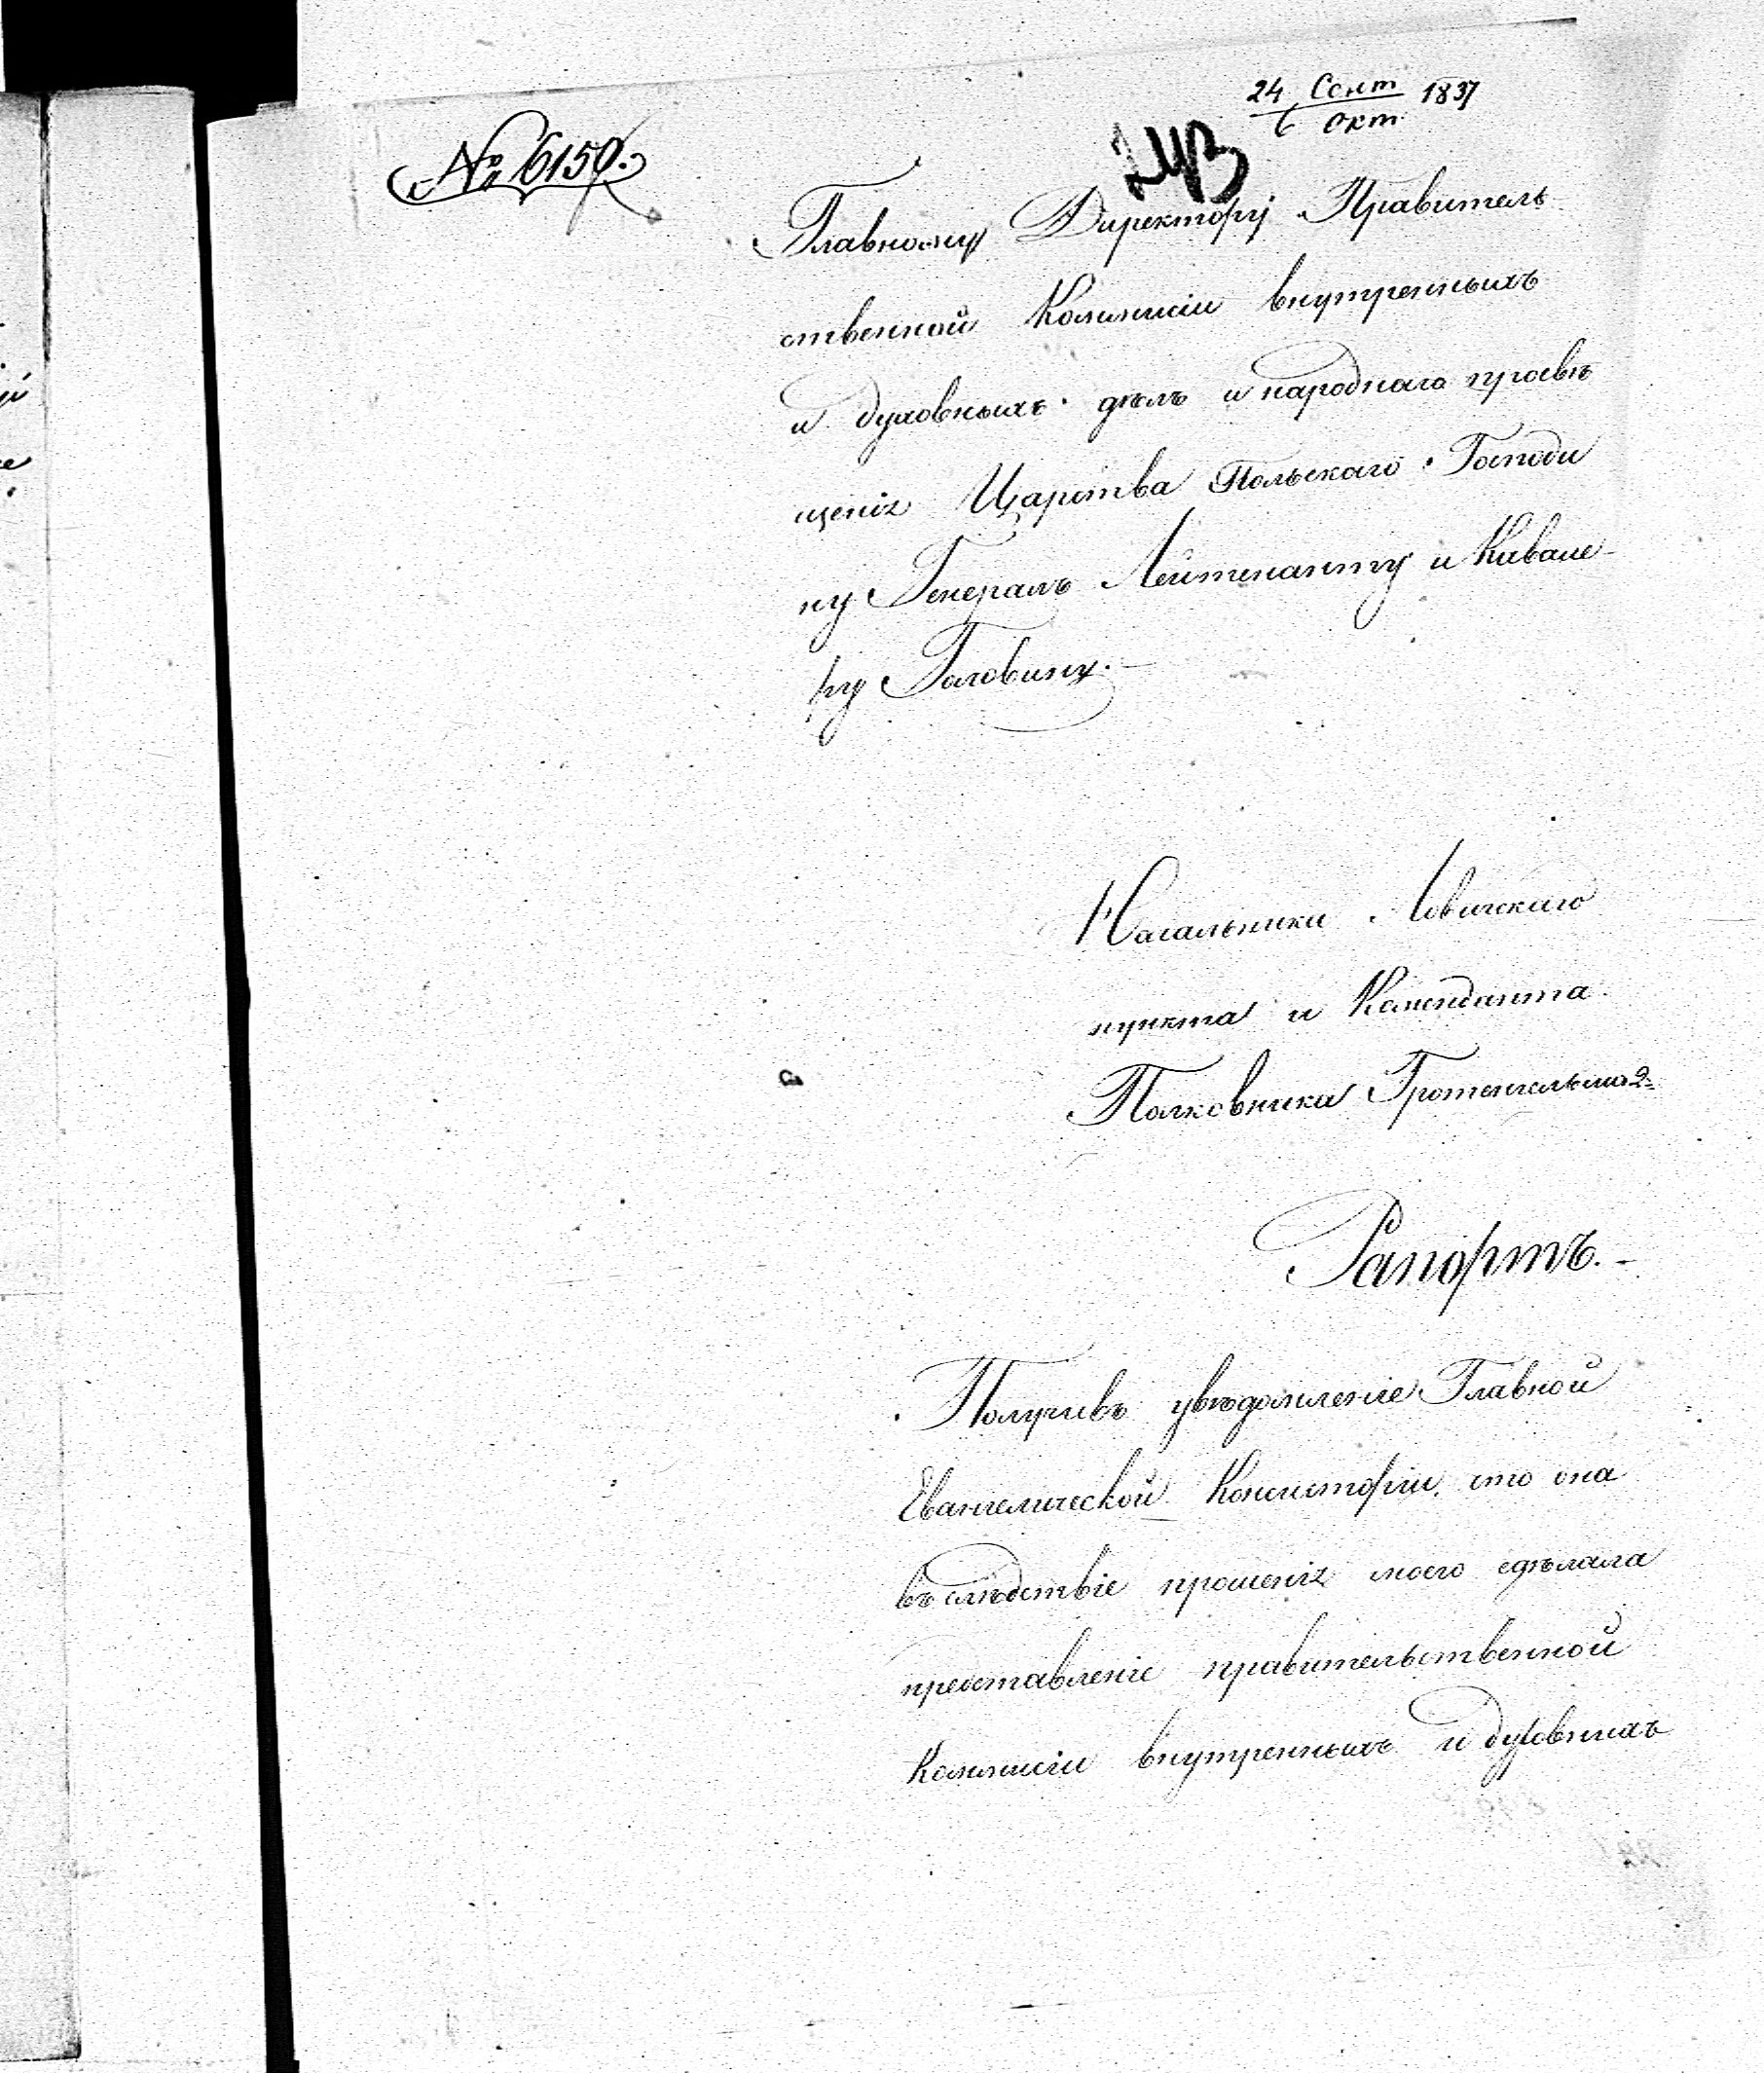 24 Сент 1837
6 Окт.
№ 6150.
243
Главному Директору Правитель
ственной Коммисіи внутренныхъ
и духовныхъ дѣлъ и народнаго просвѣ
щенія Царства Польскаго Господи
ну Генералъ Лейтенанту и Кавале-
ру Головину.
Начальника Ловичскаго
пункта и Коменданта
Полковника Гротенгельма 2
Рапортъ.
Получивъ увѣдомленіе Главной
Евангелической Консисторіи, что она
въ слѣдствіе прошенія моего сдѣлала
представленіе правительственной
Коммисіи внутренныхъ и духовныхъ